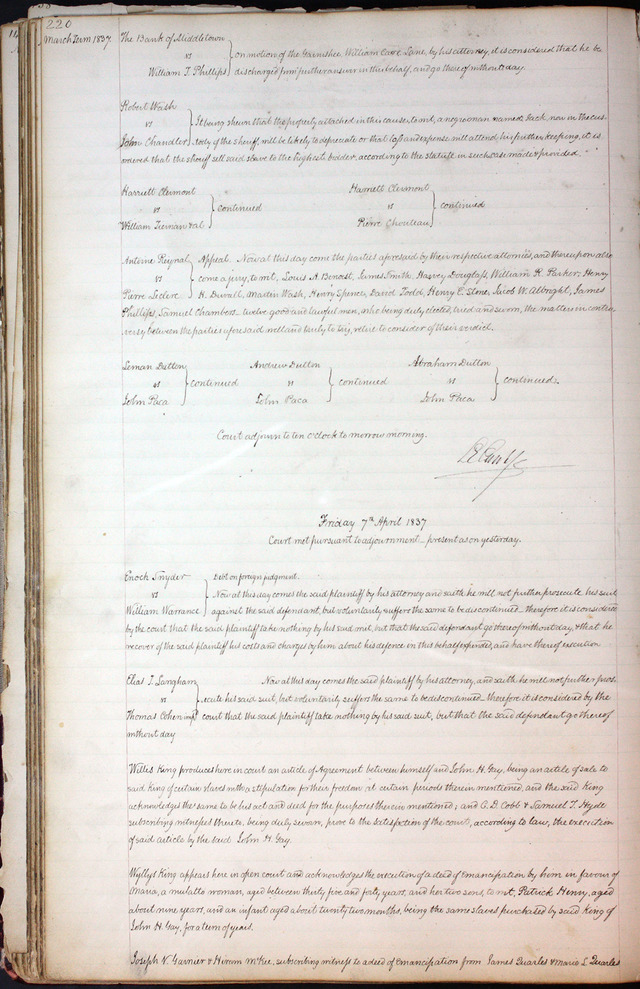 220
March Term 1837.
The Bank of Middletown
vs
William T. Phillips
on motion of the Garnishee, William Carr Lane, by his attorney, it is considered that he be
discharged from further answer in this behalf, and go thereof without day.
Robert Wash
vs
John Chandler
It being shewn that the property attached in this cause, to wit, a negro man named Jack now in the cus-
tody of the sheriff will be likely to depreciate or that loss and expense will attend his further keeping, it is
ordered that the sheriff sell said slave to the highest bidder, according to the statute in such case made & provided.
Harriett Clermont
vs
William Tiernan & al
continued
Harriett Clermont
vs
Pierre Chouteau
continued
Antoine Reynal
vs
Pierre Leclerc
Appeal. Now at this day come the parties aforesaid by their respective attornies, and thereupon also
come a jury, to wit, Louis A. Benoist, James Smith, Harvey Douglass, William R. Parker, Henry
H. Duvall, Martin Wash, Henry Spence, David Todd, Henry C. Stone, Jacob W. Albright, James
Phillips, Samuel Chambers twelve good and lawful men, who being duly elected, tried and sworn, the matters in contro-
versy between the parties aforesaid well and truly to try, retire to consider of their verdict.
Leman Dutton
vs
John Paca
continued
Andrew Dutton
vs
John Paca
continued
Abraham Dutton
vs
John Paca
continued.
Court adjourn to ten o'clock to morrow morning.
Friday 7th April 1837
Court met pursuant to adjournment – present as on yesterday.
Enoch Snyder
vs
William Warrance
Debt on foreign judgment.
Now at this day comes the said plaintiff by his attorney and saith he will not further prosecute his suit
against the said defendant, but voluntarily suffers the same to be discontinued – therefore it is considered
by the court that the said plaintiff take nothing by his said writ, but that the said defendant go thereof without day, & that he
recover of the said plaintiff his costs and charges by him about his defence in this behalf expended, and have thereof execution
Elias T. Langham
vs
Thomas Cohen
Now at this day comes the said plaintiff by his attorney, and saith he will not further pros-
ecute his said suit, but voluntarily suffers the same to be discontinued – therefore it is considered by the
court that the said plaintiff take nothing by his said suit, but that the said defendant go thereof
without day
Willis King produces here in court an article of Agreement between himself and John H. Gay, being an article of sale to
said King of certain slaves with a stipulation for their freedom at certain periods therein mentioned, and the said King
acknowledges the same to be his act and deed for the purposes therein mentioned; and A. D. Cobb & Samuel T. Hyde
subscribing witnesses thereto, being duly sworn, prove to the satisfaction of the court, according to law, the execution
of said article by the said John H. Gay.
Wyllys King appears here in open court and acknowledges the execution of a deed of emancipation by him in favour of
Maria, a mulatto woman, aged between thirty five and forty years, and her two sons, to wit, Patrick Henry, aged
about nine years, and an infant aged about twenty two months, being the same slaves purchased by said King of
John H. Gay, for a term of years.
Joseph V. Garnier & Hiram McKee, subscribing witness to a deed of emancipation from James Quarles & Maria L Quarles